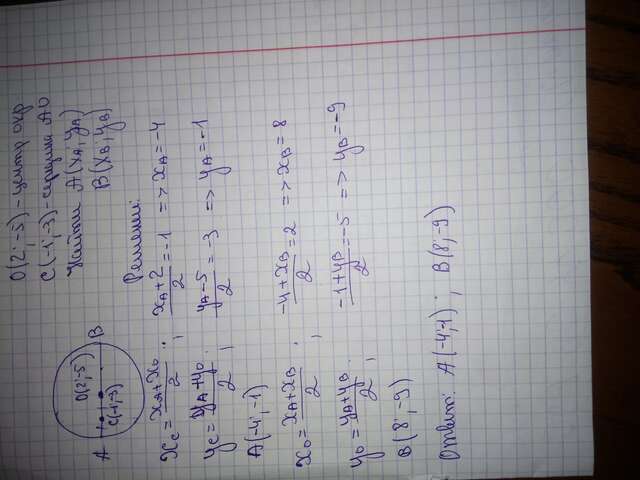 O(2;-5)-центр окр
C(-1;-3)-середина AO
Найти A(xA; yA)
B(xB; yB)
A
O(2;-5)
C(-1;-3)
B
Решение:
xC = (xA + xO)/2 ; (xA + 2)/2 = -1 => xA = -4
yC = (yA + yO)/2 ; (yA - 5)/2 = -3 => yA = -1
A(-4; -1)
xO = (xA + xB)/2 ; (-4 + xB)/2 = 2 => xB = 8
yO = (yA + yB)/2 ; (-1 + yB)/2 = -5 => yB = -9
B(8; -9)
Ответ: A(-4;-1) ; B(8;-9)